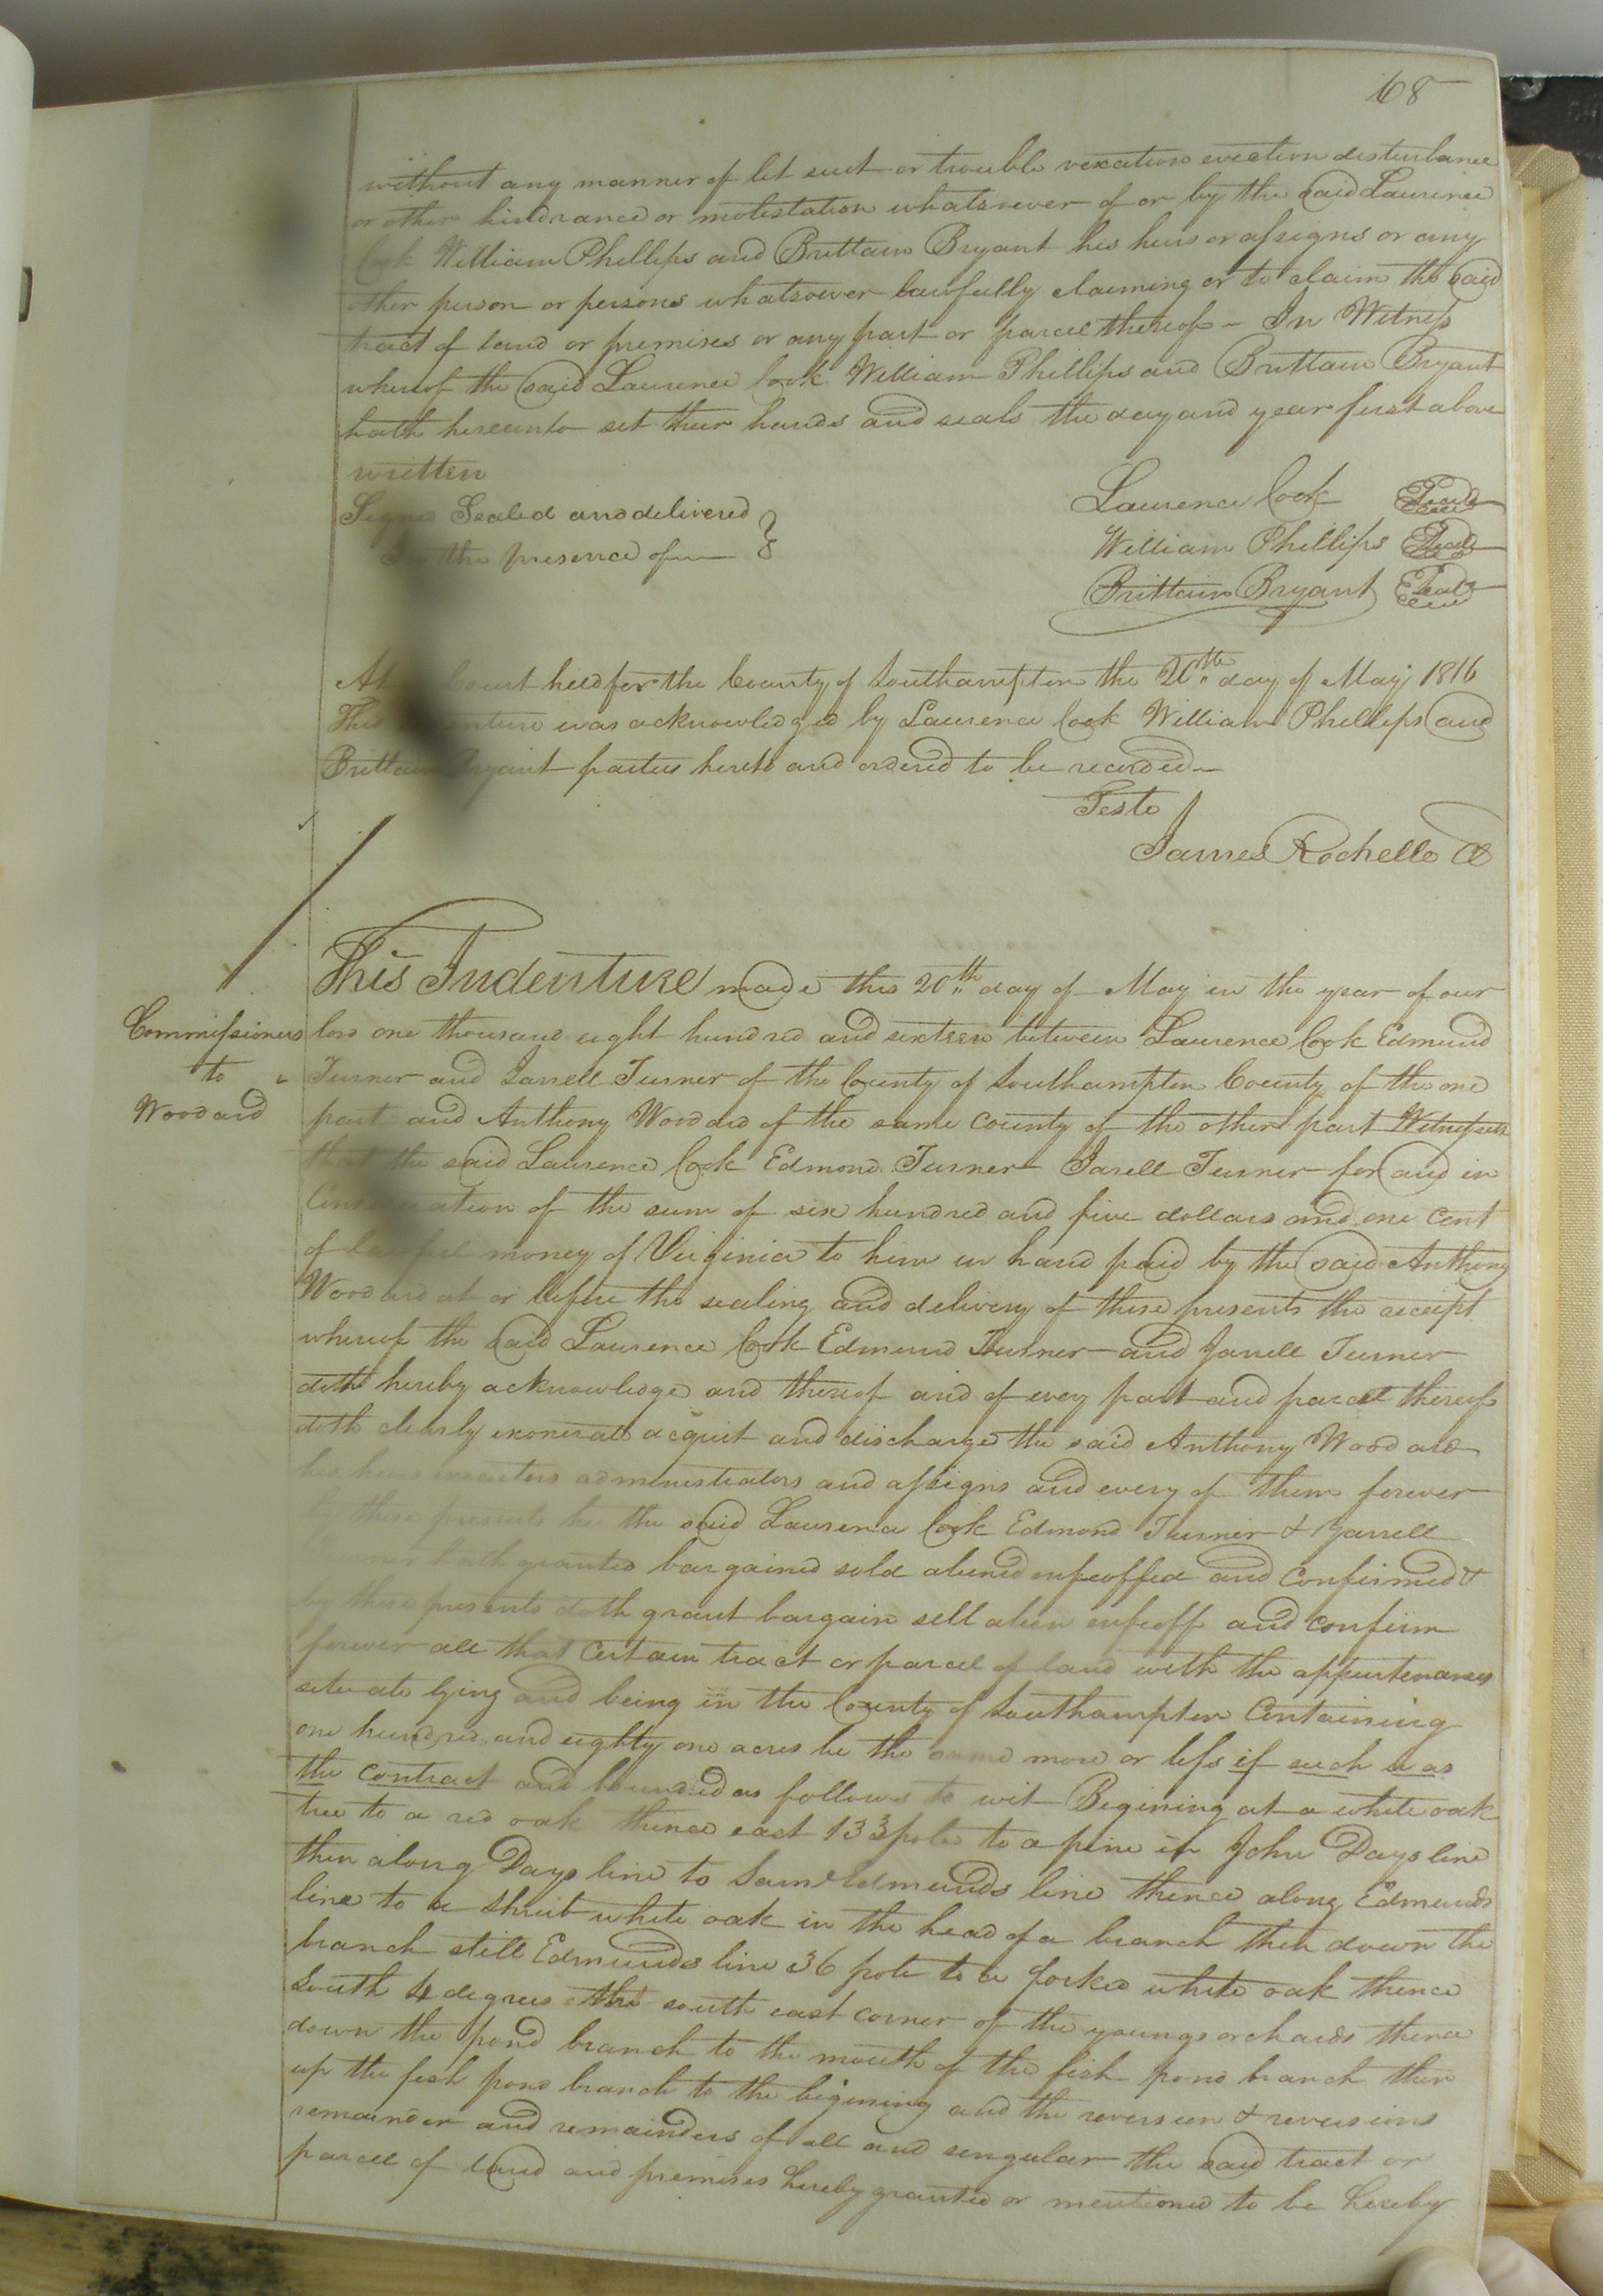 68
without any manner of let suit or trouble vexation eviction disturbance
or other hindrance or molestation whatsoever of or by the said Laurence
Cook William Phillips and Brittain Bryant his heirs or assigns or any
other person or persons whatsoever lawfully claiming or to claim the said
tract of land or premises or any part or parcel thereof - In Witness
whereof the said Laurence Cook William Phillips and Brittain Bryant
hath hereunto set their hands and seals the day and year first above
written
Signed Sealed and delivered
In the presence of
Laurence Cook Seal
William Phillips Seal
Brittain Bryant Seal
At Court held for the County of Southampton the 20th day of May 1816
This Indenture was acknowledged by Laurence Cook William Phillips and
Brittain Bryant parties hereto and ordered to be recorded
Teste
James Rochelle Cl
Commissioners
to
Woodard
This Indenture made this 20th day of May in the year of our
lord one thousand eight hundred and sixteen between Laurence Cook Edmund
Turner and Jarrell Turner of the County of Southampton County of the one
part and Anthony Woodard of the same county of the other part Witnesseth
that the said Laurence Cook Edmond Turner Jarell Turner for and in
Consideration of the sum of six hundred and five dollars and one cent
of lawful money of Virginia to him in hand paid by the said Anthony
Woodard at or before the sealing and delivery of these presents the receipt
whereof the said Laurence Cook Edmund Turner and Jarrell Turner
doth hereby acknowledge and thereof and of every part and parcel thereof
doth clearly exonerate acquit and discharge the said Anthony Woodard
his heirs executors administrators and assigns and every of them forever
these presents he the said Laurence Cook Edmond Turner & Jarrell
Turner hath granted bargained sold aliened enfeoffed and Confirmed &
by these presents doth grant bargain sell alien enfeoff and confirm
forever all that Certain tract or parcel of land with the appurtenances
situate lying and being in the County of Southampton Containing
one hundred and eighty one acres be the same more or less if such was
the contract and bounded as follows to wit Begining at a white oak
tree to a red oak thence east 133 pole to a pine in John Days line
then along Days line to Saml Edmunds line thence along Edmunds
line to a shrub white oak in the head of a branch then down the
branch still Edmunds line 36 pole to a forked white oak thence
South 4 degrees the south east corner of the youngs orchards thence
down the pond branch to the mouth of the fish pond branch then
up the fish pond branch to the begining and the reversion & reversions
remainder and remainders of all and singular the said tract or
parcel of land and premises hereby granted or mentioned to be hereby